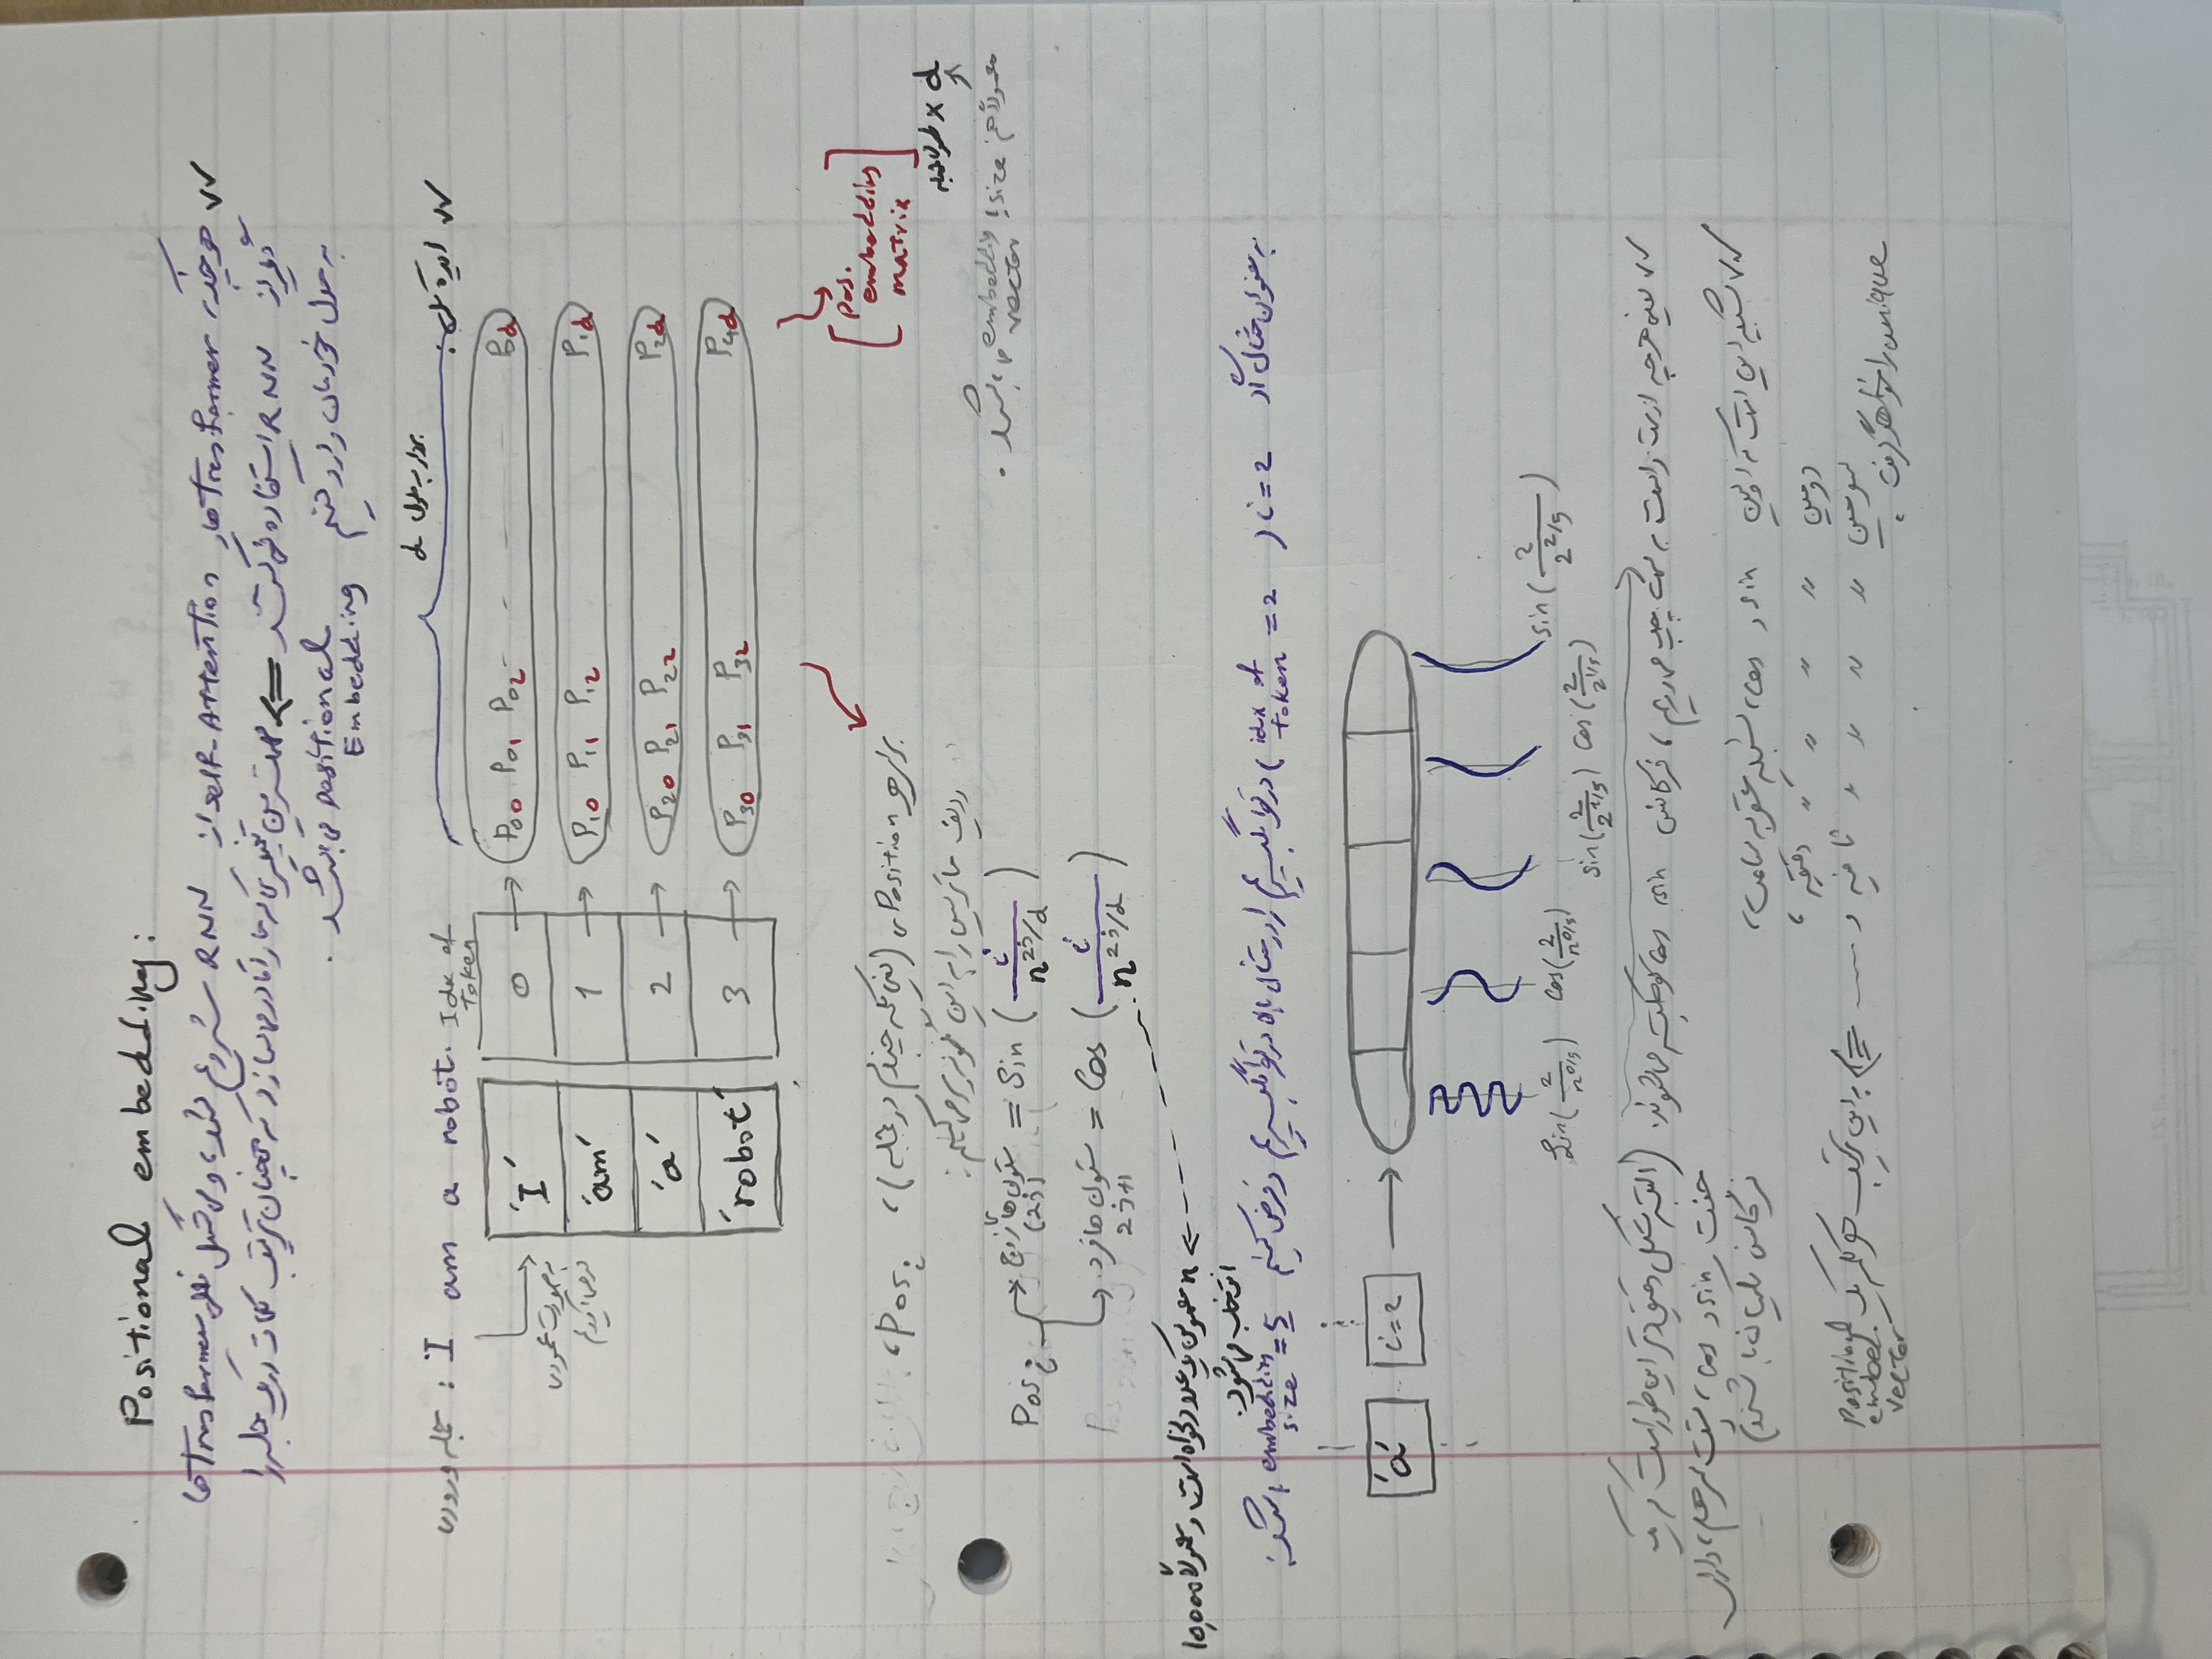 Positional embedding:
✓✓ هرچند، Transformer ها و self-Attention از RNN شروع شدند، ولی شکل فعلی Transformer ها
دیگر از RNN استفاده نمی کنند => مهمترین تغییری که ما را قادر می سازد که همچنان ترتیب کلمات در یک جمله را
به مدل خودمان وارد کنیم Positional Embedding می باشد.
✓✓ ایده کلی:
بردار به طول d
جمله ورودی: I am a robot.
Idx of
Token
به صورت عمودی
در می آوریم
'I' 0 → P00 P01 P02 - - - P0d
'am' 1 → P10 P11 P12 P1d
'a' 2 → P20 P21 P22 P2d
'robot' 3 → P30 P31 P32 P4d
[Pos.
embedding
matrix]
طول جمله × d
معمولاً هم size با embedding vector ها باشد.
برای هر Position (یعنی کلمه چندم در جمله)، Pos i،
ردیف ماتریس را به این گونه پر می کنیم:
Pos i → ستون های زوج (2j) = Sin (i / n^2j/d)
→ ستون ها فرد 2j+1 = Cos (i / n^2j/d)
n معمولا یک عدد دلخواه است و معمولاً 10,000
انتخاب می شود.
به عنوان مثال اگر i=2 (idx of token = 2) را در مثال بالا در نظر بگیریم و فرض کنیم embedding size = 5 باشد
'a' i=2 →
Sin(2/n^0/5) Cos(2/n^0/5) Sin(2/2^1/5) Cos(2/2^1/5) Sin(2/2^2/5)
✓✓ یعنی هرچه از سمت راست به سمت چپ می رویم، فرکانس sin و cos کوچکتر می شوند. (البته شکل دقیق تر این طور است که یک
جفت sin و cos، پشت سر هم، دارای
فرکانس یکسان باشند)
✓✓ شبیه این است که اولین sin و cos، شبیه عقربه ساعت،
دومین 〃 〃 〃 〃 دقیقه،
سومین 〃 〃 〃 〃 ثانیه و ... => به این ترتیب هر کلمه یک Positional embed. vector
unique را خواهد گرفت.